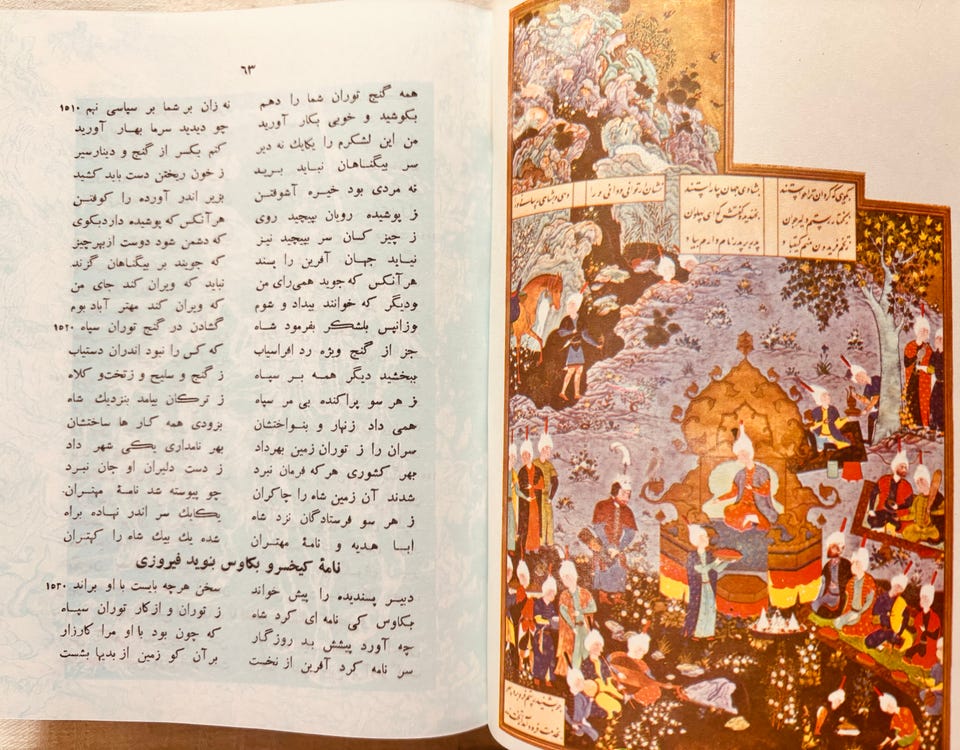 ٦٣
همه گنج توران شما را دهم نه زان بر شما بر سپاسی نهم ١٥١٠
بکوشید و خوبی بکار آورید چو دیدید سرما بهار آورید
من این لشکرم را یکایك نه دیر کنم یکسر از گنج و دینارسیر
سر بیگناهان نباید برید ز خون ریختن دست باید کشید
نه مردی بود خیره آشوفتن بزیر اندر آورده را کوفتن
ز پوشیده رویان بپیچید روی هرآنکس که پوشیده داردبکوی
ز چیز کسان سر بپیچید نیز که دشمن شود دوست ازبهرچیز
نیاید جهان آفرین را پسند که جویند بر بیگناهان گزند
هرآنکس که جوید همی‌رای من نباید که ویران کند جای من
ودیگر که خوانند بیداد و شوم که ویران کند مهتر آباد بوم
وزانپس بلشکر بفرمود شاه گشادن در گنج توران سپاه ١٥٢٠
جز از گنج ویژه رد افراسیاب که کس را نبود اندران دستیاب
ببخشید دیگر همه بر سپاه ز گنج و سلیح و زتخت‌و کلاه
ز هر سو پراکنده بی مر سپاه ز ترکان بیامد بنزدیك شاه
همی داد زنهار و بنواختشان بزودی همه کار ها ساختشان
سران را ز توران زمین بهرداد بهر نامداری یکی شهر داد
بهر کشوری هرکه فرمان نبرد ز دست دلیران او جان نبرد
شدند آن زمین شاه را چاکران چو پیوسته شد نامهٔ مهتران
ز هر سو فرستادگان نزد شاه یکایك سر اندر نهاده براه
ابا هدیه و نامهٔ مهتران شده یك بیك شاه را کهتران
نامهٔ کیخسرو بکاوس بنوید فیروزی
دبیر پسندیده را پیش خواند سخن هرچه بایست با او براند ١٥٣٠
بکاوس کی نامه ای کرد شاه ز توران و ازکار توران سپاه
چه آورد پیشش بد روزگار که چون بود با او مرا کارزار
سر نامه کرد آفرین از نخست برآن کو زمین از بدیها بشست